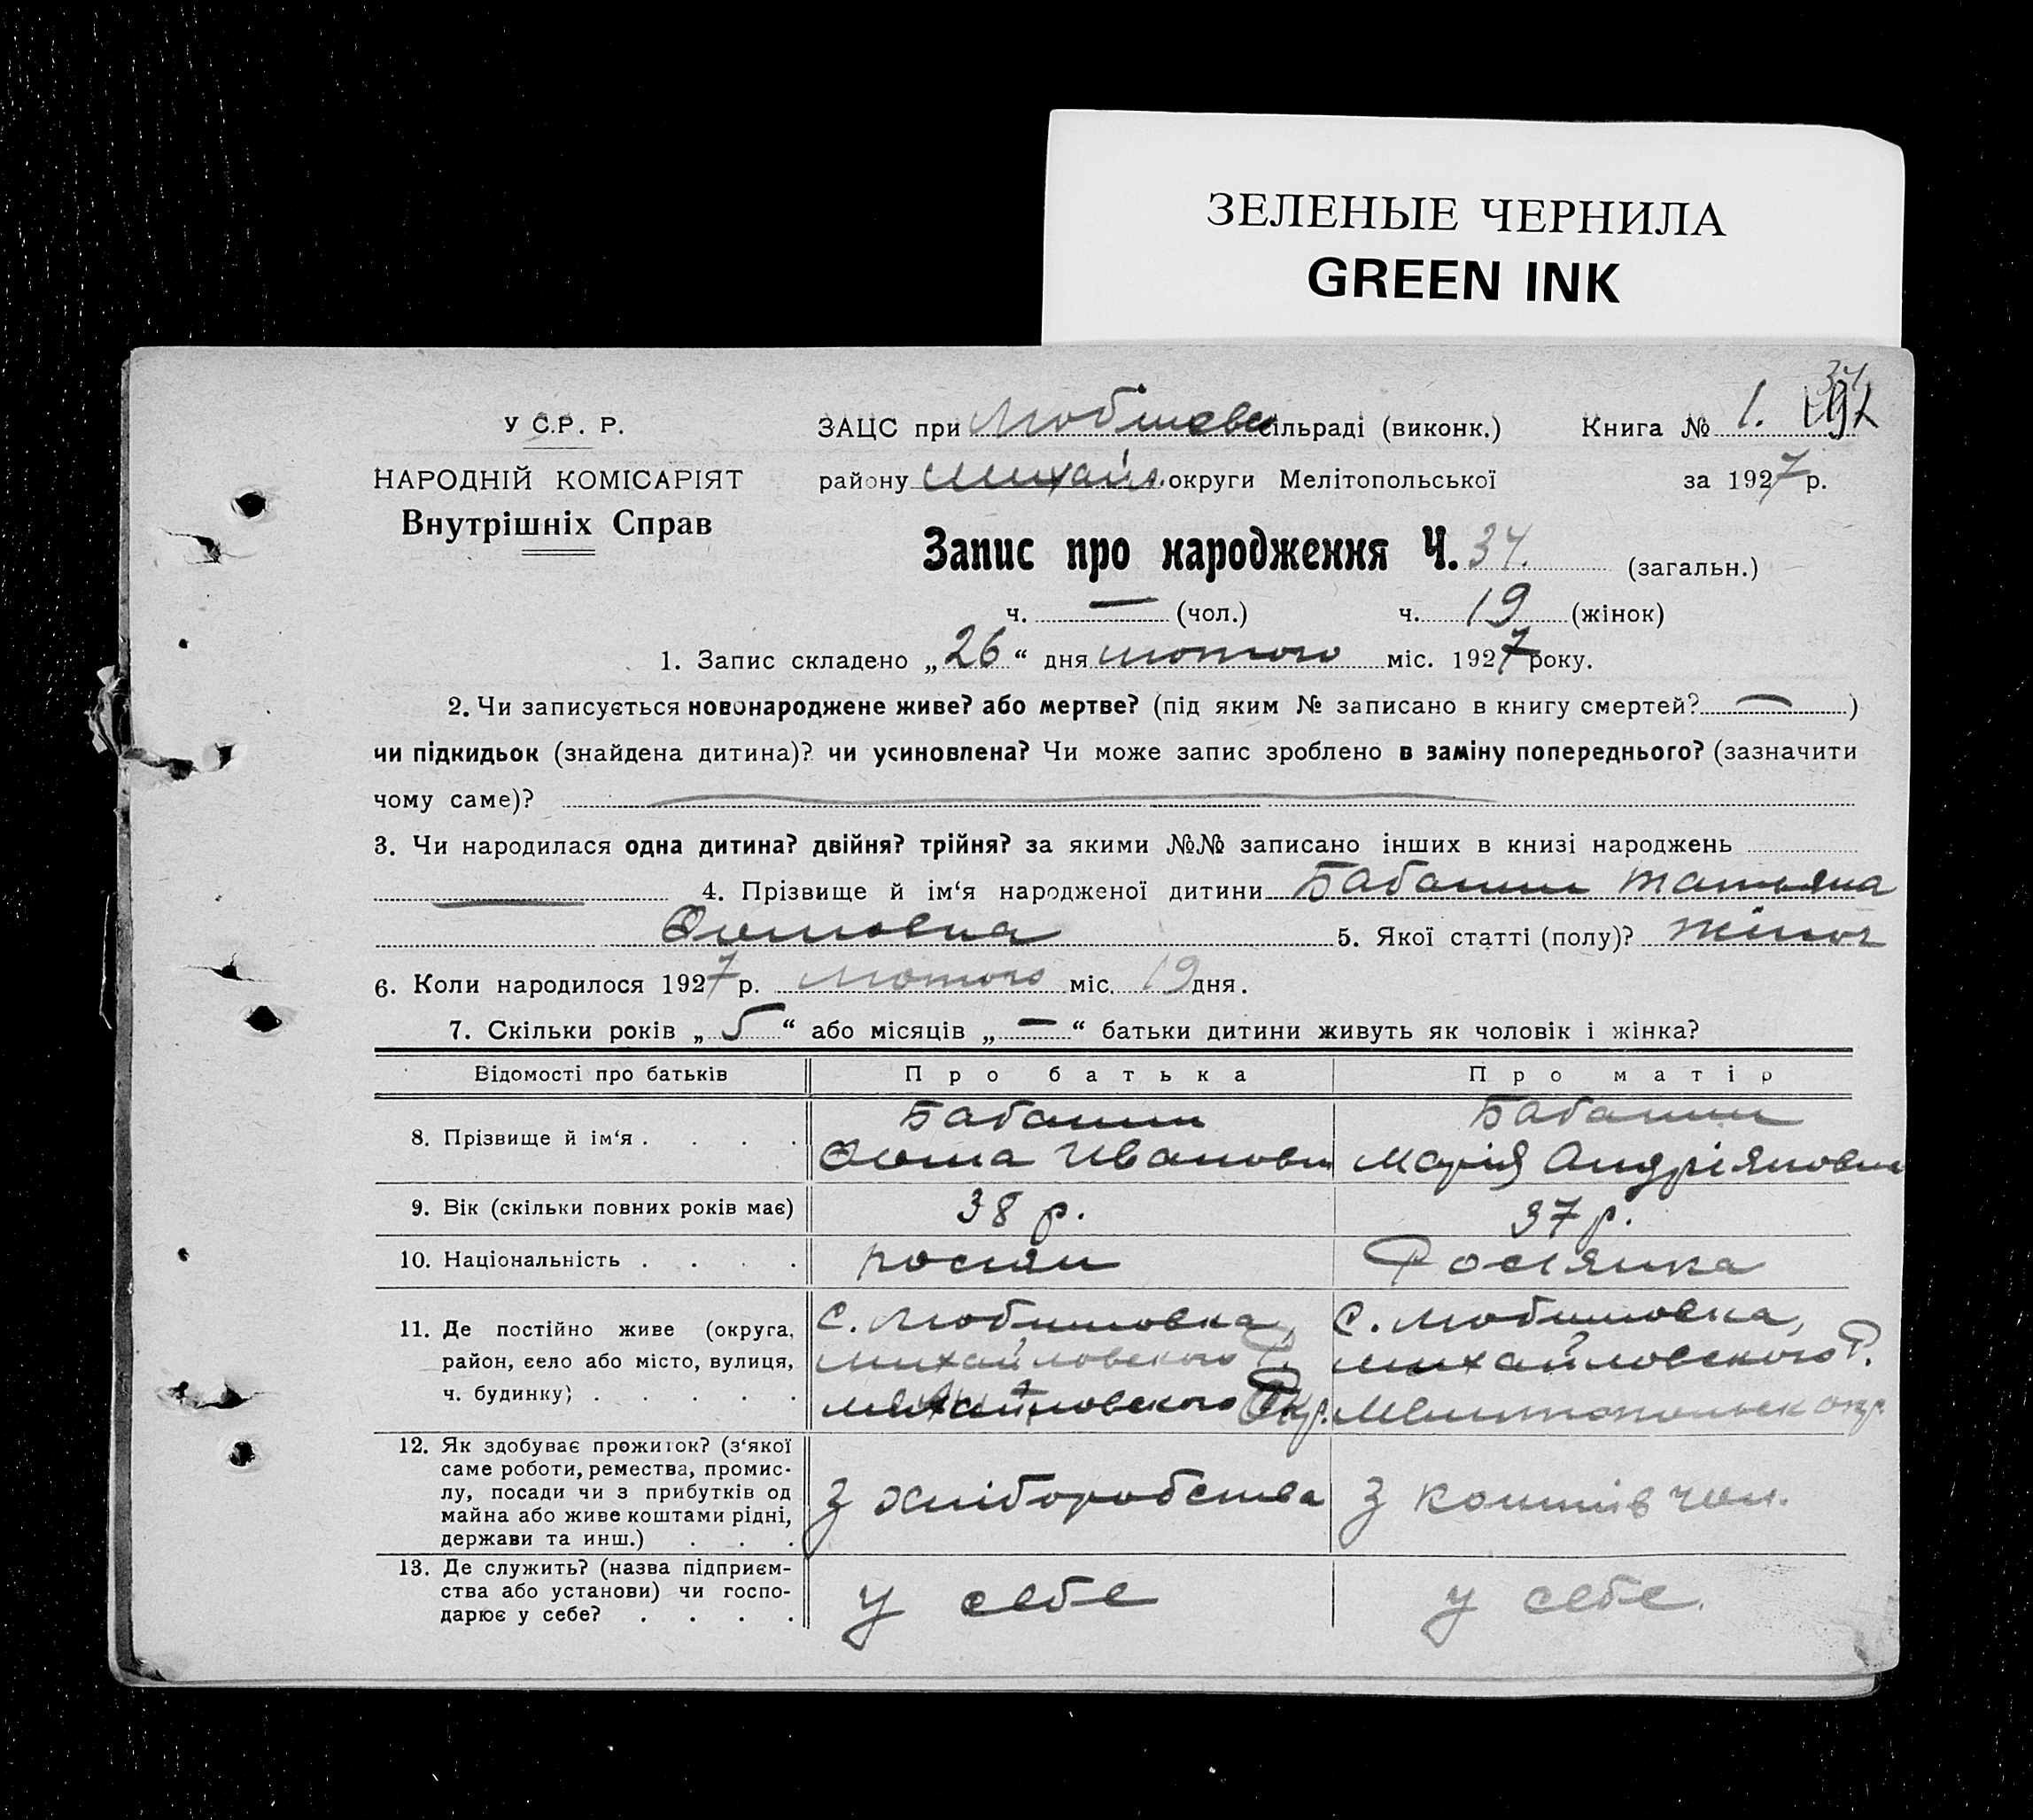 ЗЕЛЕНЫЕ ЧЕРНИЛА
GREEN INK
У С.Р. Р.
НАРОДНІЙ КОМІСАРІЯТ
Внутрішніх Справ
ЗАЦС при сільраді (виконк.) Книга № 1.
району Михайл. округи Мелітопольської за 1927 р.
Запис про народження Ч. 34. (загальн.)
ч. — (чол.) ч. 19 (жінок)
1. Запис складено „26“ дня лютого міс. 1927 року.
2. Чи записується новонароджене живе? або мертве? (під яким № записано в книгу смертей? — )
чи підкидьок (знайдена дитина)? чи усиновлена? Чи може запис зроблено в заміну попереднього? (зазначити
чому саме)?
3. Чи народилася одна дитина? двійня? трійня? за якими №№ записано інших в книзі народжень
— 4. Прізвище й ім‘я народженої дитини Бабанин Татьяна
Фомовна 5. Якої статті (полу)? жіноч
6. Коли народилося 1927 р. лютого міс. 19 дня.
7. Скільки років „5“ або місяців „—“ батьки дитини живуть як чоловік і жінка?
Відомості про батьків Про батька Про матір
8. Прізвище й ім‘я . . . . Бабанин Фома Иванович Бабанин Марія Андріяновна
9. Вік (скільки повних років має) 38 р. 37 р.
10. Національність . . . . росіян Росіянка
11. Де постійно живе (округа, район, село або місто, вулиця, ч. будинку) . . . . .
с. Любимовка, Михайловского Р. Окр.
с. Любимовка, Михайловского Р. Мелитопольск окр.
12. Як здобуває прожиток? (з‘якої
саме роботи, ремества, промис-
лу, посади чи з прибутків од
майна або живе коштами рідні,
держави та инш.) . . .
З хліборобства З коштів чол.
13. Де служить? (назва підприєм-
ства або установи) чи госпо-
дарює у себе? . . . .
у себе у себе.